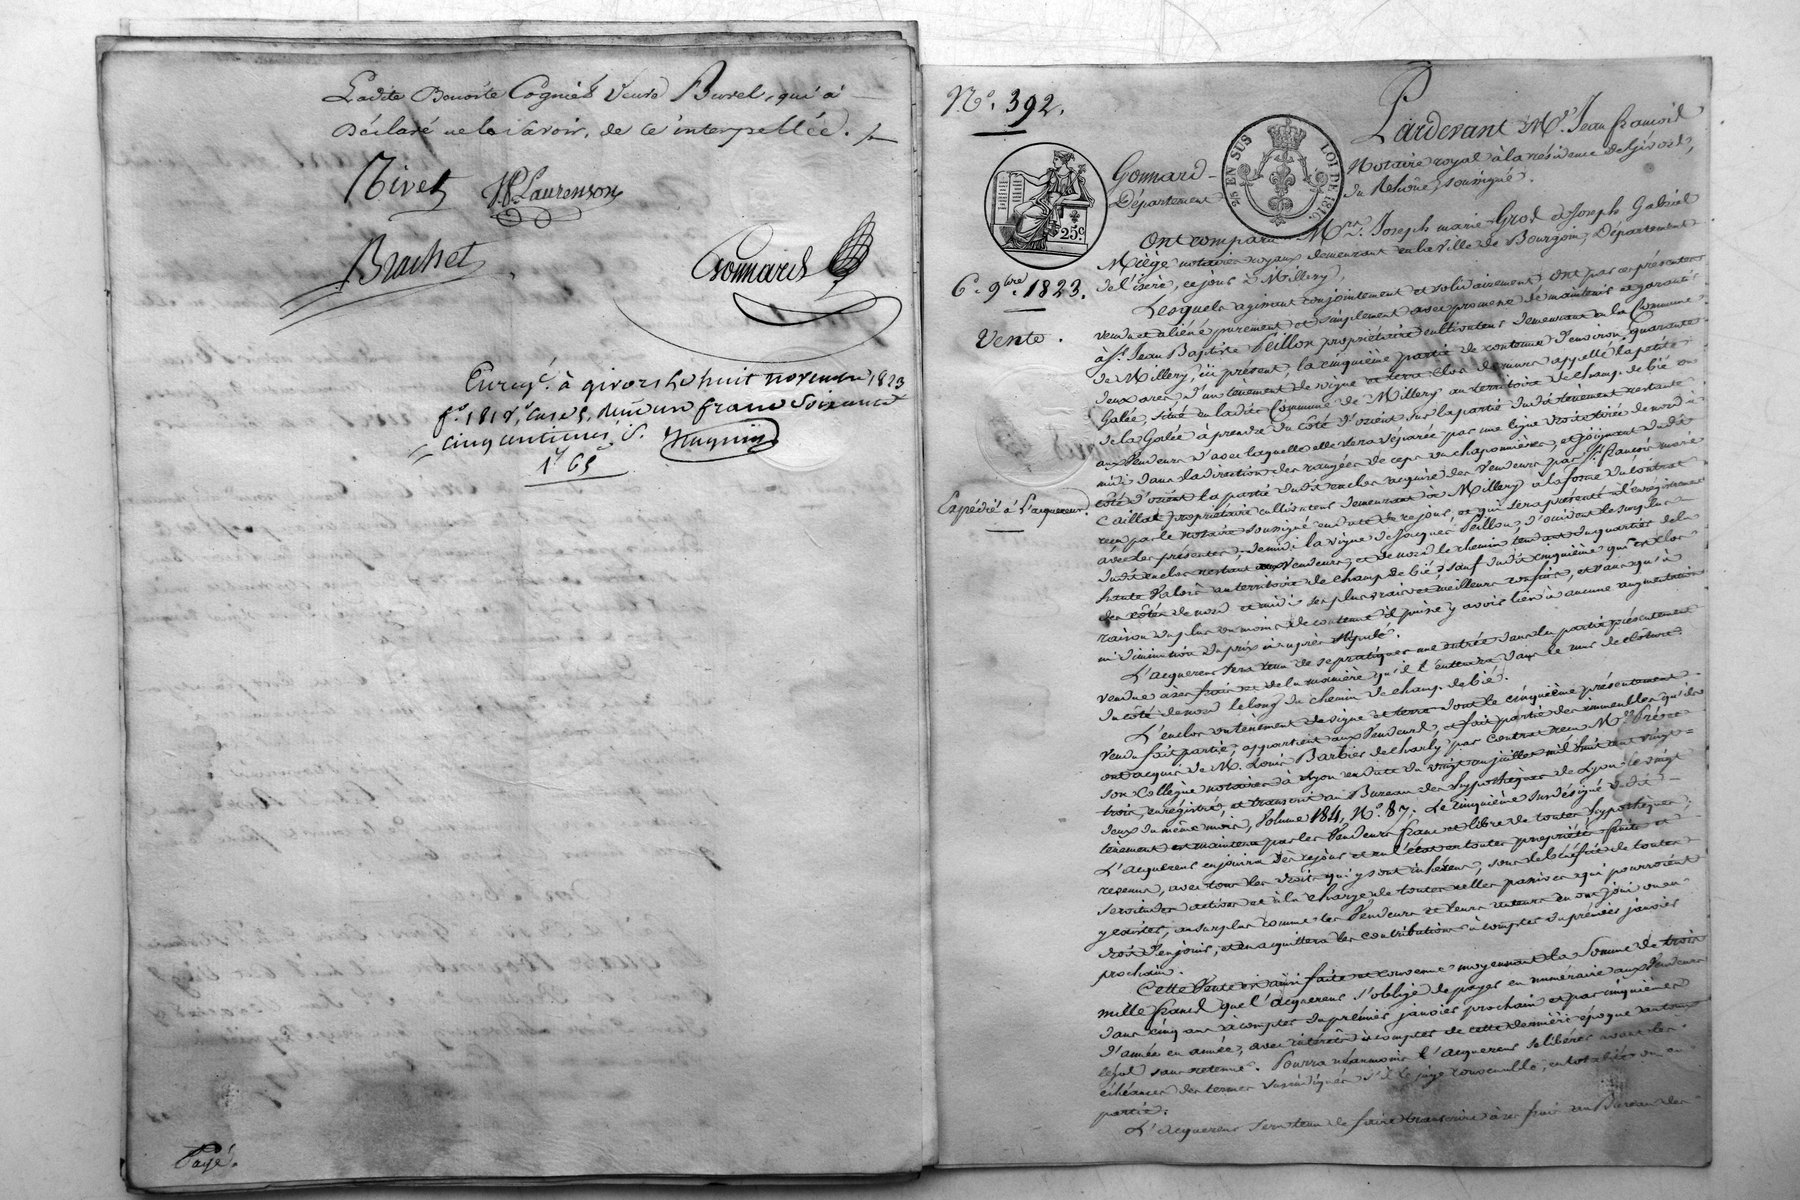 Ladite Benoîte Cogniet Veuve Burel, qui a
déclaré ne le savoir, de ce interpellée.
Nivet
Laurenson
Brachet
Gonnard
Enreg.é à givors le huit novembre 1823
f.o 181 v.o case 5, reçu un franc soixante
cinq centimes,
1f 65c
Payé.
N.o 392.
25c
25c EN SUS
LOI DE 1816
Pardevant M.e Jean François
Gonnard
Notaire royal à la résidence de Givors,
Département
du Rhône, soussigné.
Ont comparu M.rs Joseph marie Gros et Joseph Gabriel
Miège notaires royaux demeurant en la ville de Bourgoin, Département
de l'isère, ce jour à Millery,
6. 9bre 1823.
Vente.
Lesquels agissant conjointement et solidairement ont par ces présentes
vendu et aliéné purement et simplement avec promesse de maintenir et garantir
à S.r Jean Baptiste Peillon propriétaire cultivateur demeurant en la Commune
de Millery, ici présent, la cinquième partie de contenue d'environ quarante
deux ares d'un tènement de vigne et terre clos de murs appellé la petite
Galée, situé en ladite Commune de Millery au territoire de champ de bié ou
de la Galée à prendre du côté d'orient sur la partie dudit tènement restante
aux Vendeurs d'avec laquelle elle sera séparée par une ligne droite tirée de nord
midi dans la direction des rangées de ceps ou chaponnières, et joignant dudit
côté d'orient la partie dudit enclos acquise des Vendeurs par S.r françois marie
Caillat propriétaire cultivateur demeurant à Millery à la forme du contrat
reçu par le notaire soussigné en date de ce jour, et qui sera présenté à l'enregistrement
Expédié à l'acquereur.
avec les présentes; de midi la vigne de Jacques Peillon, d'occident le surplus
dudit enclos restant aux Vendeurs, et de nord le chemin tendant du quartier de la
haute Valois au territoire de champ de bié; sauf dudit cinquième qui est clos
des côtés de nord et midi ses plus vrais et meilleurs confins, et sans qu'à
raison du plus ou moins de contenue il puisse y avoir lieu à aucune augmentation
ni diminution du prix ci après stipulé.
L'acquereur sera tenu de se pratiquer une entrée dans la partie présentement
vendue à ses frais et de la manière qu'il l'entendra dans le mur de clôture
du côté de nord le long du chemin de champ de bié.
L'enclos ou tènement de vigne et terre dont le cinquième présentement
vendu fait partie, appartient aux Vendeurs, et fait partie des immeubles qu'ils
ont acquis de M. Louis Barbier de charly par contrat reçu M.e
son Collègue notaires à Lyon en date du vingt un juillet mil huit cent vingt
trois, enregistré, et transcrit au Bureau des hypothèques de Lyon le vingt
deux du même mois, Volume 184, N.o 87. Le cinquième sus désigné dudit
tènement est maintenu par les Vendeurs franc et libre de toutes hypothèques;
L'acquereur en jouira dès ce jour et en l'état en toute propriété fruits et
revenus, avec tous les droits qui y sont inhérens, sous le bénéfice de toutes
servitudes actives et à la charge de toutes celles passives qui pourroient
y exister, au surplus comme les Vendeurs et leurs auteurs en ont joui ou eu
droit d'en jouir, et en acquittera les contributions à compter du premier janvier
prochain.
Cette Vente est ainsi faite et convenue moyennant la somme de trois
mille francs que l'acquereur s'oblige de payer en numéraire aux Vendeurs
dans cinq ans à compter du premier janvier prochain et par cinquièmes
d'année en année, avec intérêts à compter de cette dernière époque au taux
légal sans retenue. Pourra néanmoins l'acquereur se libérer avant les
échéances des termes sus indiqués s'il le juge convenable, en totalité ou en
partie.
L'acquereur sera tenu de faire transcrire à ses frais au Bureau des